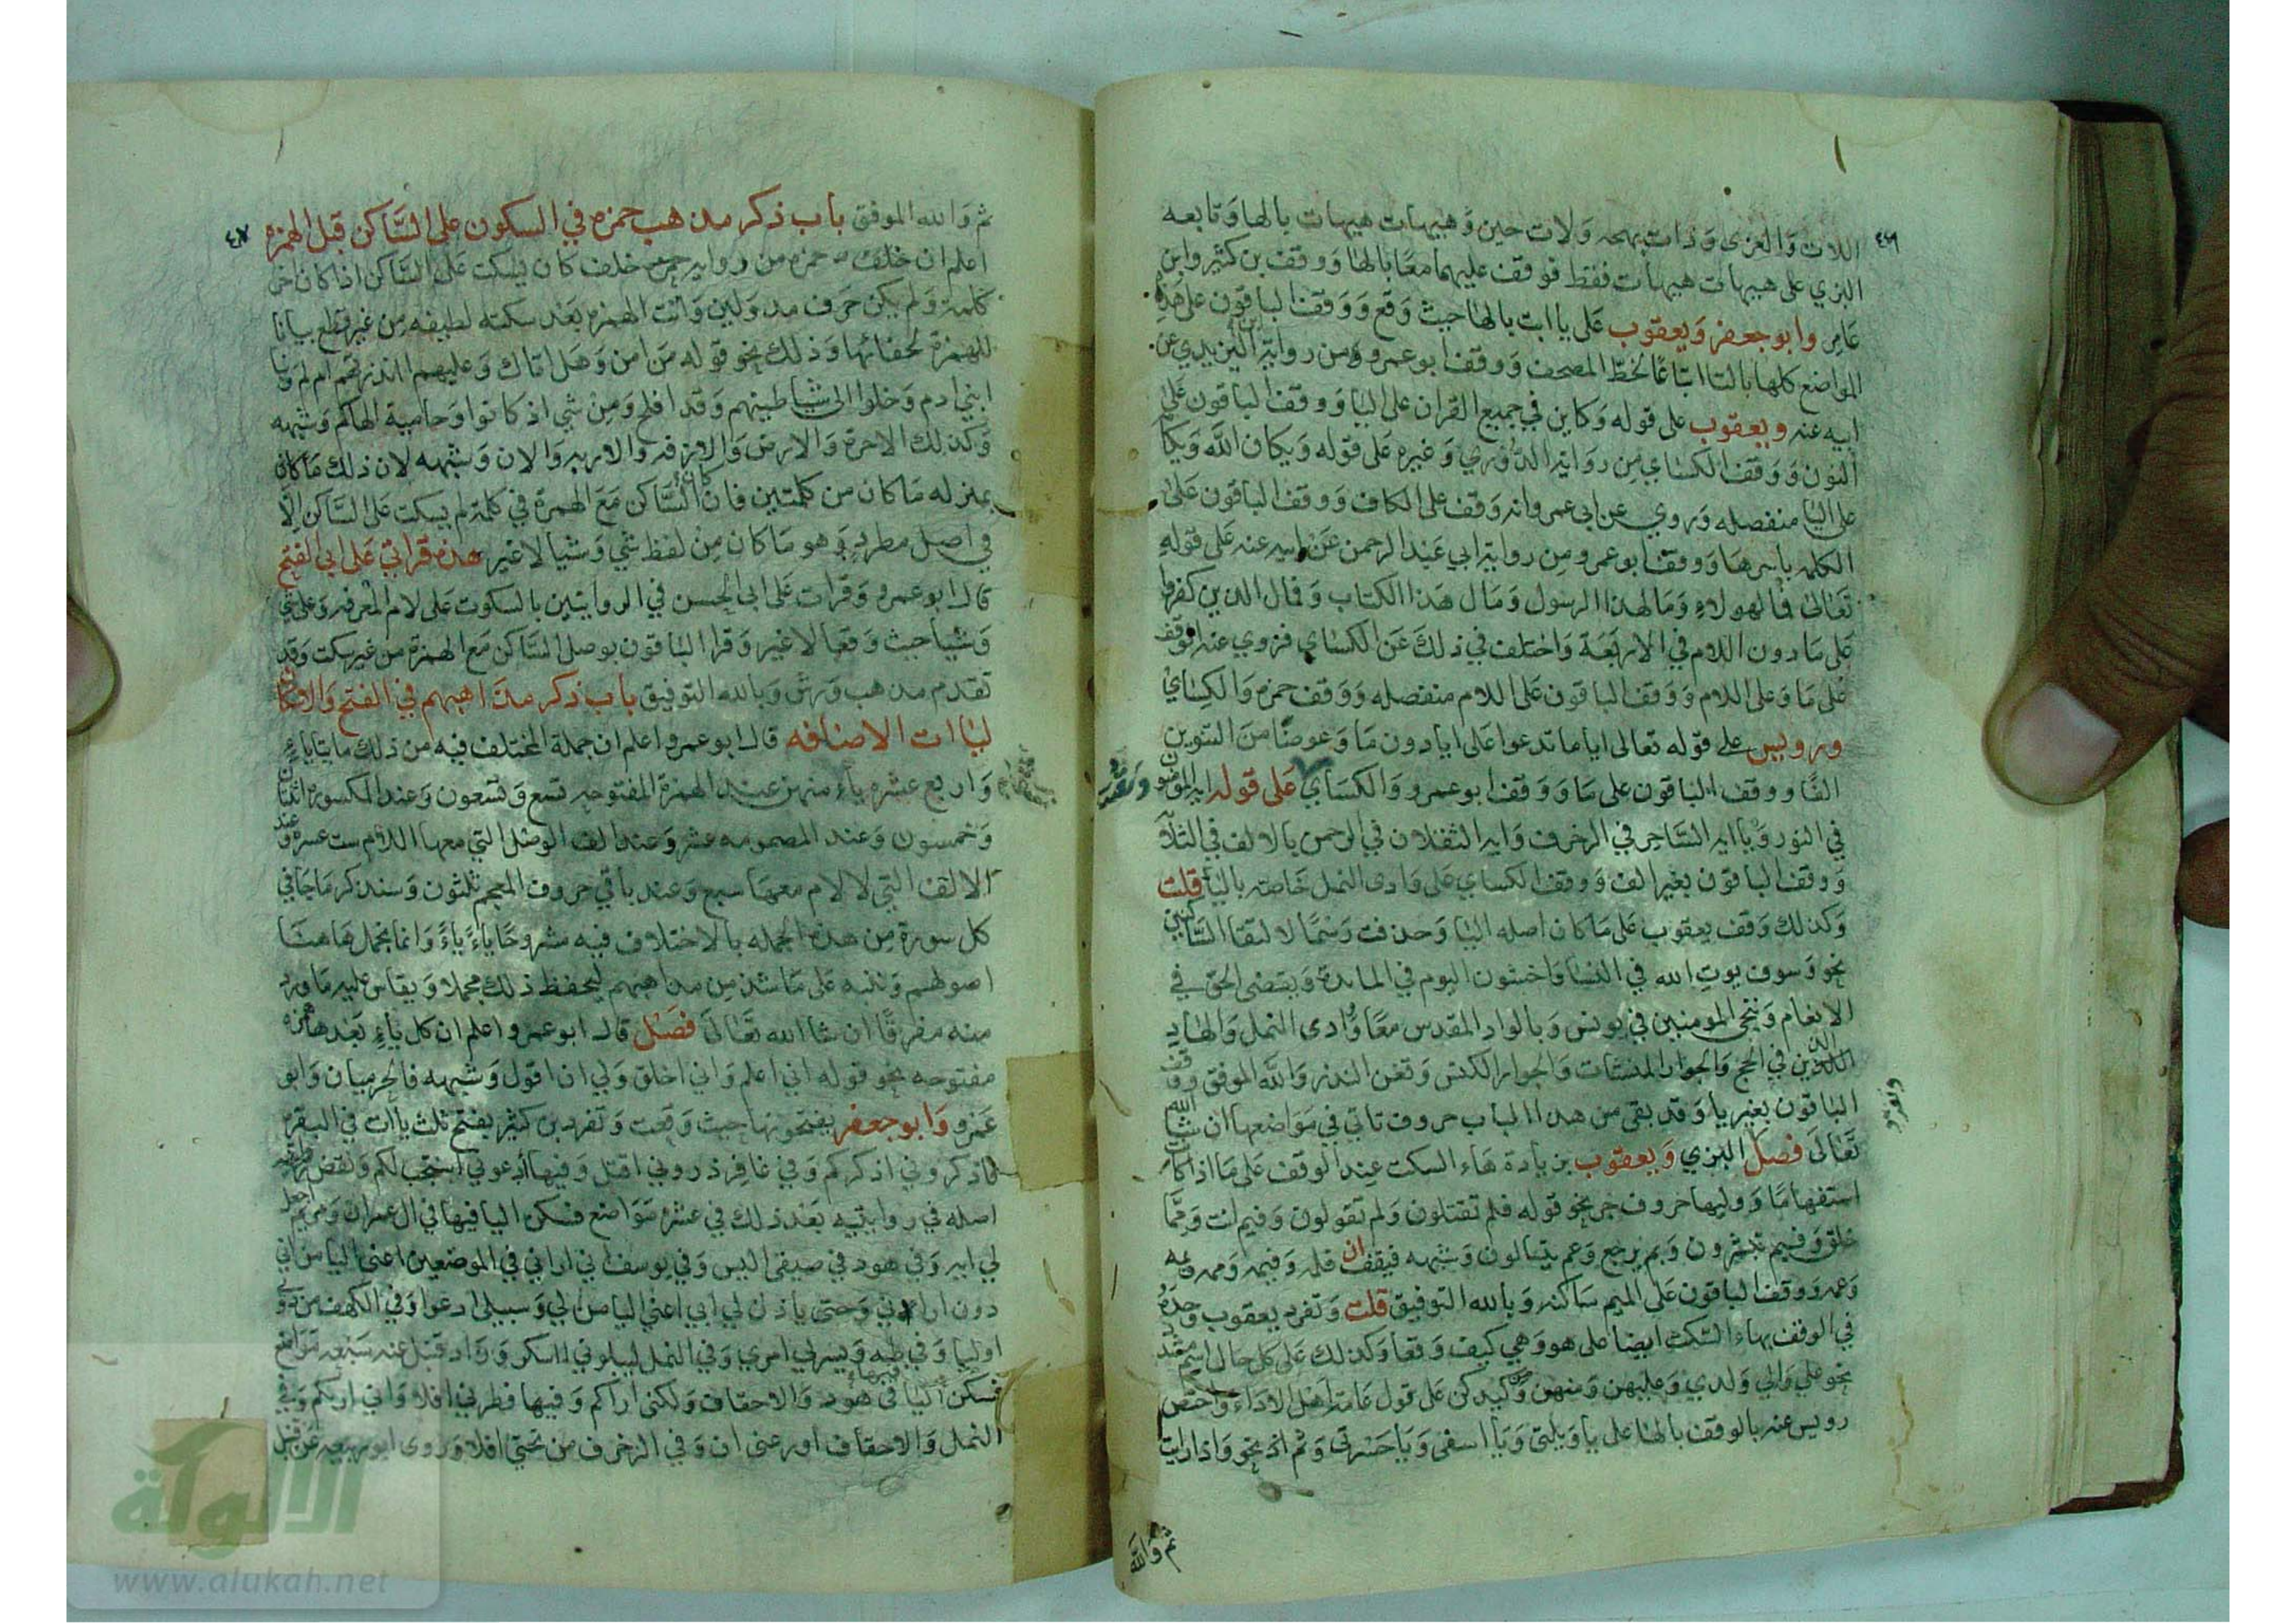 ٤٦
اللات والعزى وذات بهجه ولات حين وهيهات هيهات بالها وتابعه
البزي على هيهات هيهات فقط فوقف عليهما معا بالها ووقف بن كثير وابن
عامر وابو جعفر ويعقوب على يا ابت بالها حيث وقع ووقف الباقون على هذه
المواضع كلها بالتا اتباعا لخط المصحف ووقف ابو عمرو من رواية اليزيدي عن
ابيه عنه ويعقوب على قوله وكاين في جميع القران على اليا ووقف الباقون على
النون ووقف الكساي من رواية الدوري وغيره على قوله ويكان الله ويكا
على اليا منفصله وروي عن ابي عمرو انه وقف على الكاف ووقف الباقون على
الكلمه باسرها ووقف ابو عمرو من رواية ابي عبد الرحمن عن ابيه عنه على قوله
تعالى فمال هولاء ومال هذا الرسول ومال هذا الكتاب وفمال الذين كفروا
على ما دون اللام في الاربعة واختلف في ذلك عن الكساي فروي عنه الوقف
على ما وعلى اللام ووقف الباقون على اللام منفصله ووقف حمزه والكساي
ورويس على قوله تعالى ايا ما تدعوا على ايا دون ما وعوضا من التنوين
الفا ووقف الباقون على ما ووقف ابو عمرو والكساي على قوله ايه المومنون
في النور ويا ايه الساحر في الزخرف وايه الثقلان في الرحمن بالالف في الثلاثه
ووقف الباقون بغير الف ووقف الكساي على وادى النمل خاصه باليا قلت
وكذلك وقف يعقوب على ما كان اصله اليا وحذفت رسما لالتقا الساكنين
نحو وسوف يوت الله في النسا واخشون اليوم في المائدة ويقضى الحق في
الانعام وننجى المومنين في يونس وبالواد المقدس معا ووادى النمل ولهاد
الذين في الحج والجوار المنشات والجوار الكنس وتغن النذر والله الموفق ووقف
الباقون بغير يا وقد بقى من هذا الباب حروف تاتي في مواضعها ان شا الله
تعالى فصل البزي ويعقوب بزيادة هاء السكت عند الوقف على ما اذا كان
استفهاما ووليها حروف جر نحو قوله فلم تقتلون ولم تقولون وفيم انت ومما
خلق وفبم تبشرون وبم يرجع وعم يتسالون وشبهه فيقفان فلمه وفيمه وممه وبمه
وعمه ووقف الباقون على الميم ساكنه وبالله التوفيق قلت وتفرد يعقوب وحده
في الوقف بهاء السكت ايضا على هو وهي كيف وقعا وكذلك على كل حال اسم مشدد
نحو علي والي ولدي وعليهن ومنهن وكيدكن على قول عامة اهل الاداء واختص
رويس عنه بالوقف بالها على يا ويلتى ويا اسفى ويا حسرتى وثم اذ نحو واذا رايت
ثم والله
٤٧
ثم والله الموفق باب ذكر مذهب حمزه في السكون على الساكن قبل الهمزه
اعلم ان خلف حمزه من رواية خلف كان يسكت على الساكن اذا كان اخر
كلمة ولم يكن حرف مد ولين واتت الهمزه بعد سكته لطيفه من غير قطع بيانا
للهمزة لخفائها وذلك نحو قوله من امن وهل اتاك وعليهم اانذرتهم ام لم ونبا
ابني ادم وخلوا الى شياطينهم وقد افلح ومن شي اذ كانوا وحامية الهاكم وشبهه
وكذلك الاخرة والارض والازفه والاربه والان وشبهه لان ذلك ما كان
بمنزله ما كان من كلمتين فان كان الساكن مع الهمزة في كلمة لم يسكت على الساكن الا
في اصل مطرد وهو ما كان من لفظ شي وشيا لا غير هذه قراتي على ابي الفتح
قال ابو عمرو وقرات على ابي الحسن في الروايتين بالسكوت على لام المعرفه وعلى شي
وشيا حيث وقعا لا غير وقرا الباقون بوصل الساكن مع الهمزة من غير سكت وقد
تقدم مذهب ورش وبالله التوفيق باب ذكر مذاهبهم في الفتح والاسكان
لياات الاضافه قال ابو عمرو اعلم ان جملة المختلف فيه من ذلك مايتا ياء
واربع عشره ياء منهن عند الهمزة المفتوحه تسع وتسعون وعند المكسوره اثنتان
وخمسون وعند المضمومه عشر وعند الف الوصل التي معها اللام ست عشره وعند
الالف التي لا لام معها سبع وعند باقي حروف المعجم ثلثون وسنذكر ما جا في
كل سورة من هذه الجمله بالاختلاف فيه مشروحا ياء ياء وانما نجمل هاهنا
اصولهم وننبه على ما شذ من مذاهبهم ليحفظ ذلك مجملا ويقاس عليه ما ورد
منه مفرقا ان شا الله تعالى فصل قال ابو عمرو اعلم ان كل ياء بعدها همزه
مفتوحه نحو قوله اني اعلم واني اخلق ولي ان اقول وشبهه فالحرميان وابو
عمرو وابو جعفر يفتحونها حيث وقعت وتفرد بن كثير بفتح ثلث ياات في البقره
فاذكروني اذكركم وفي غافر ذروني اقتل وفيها ادعوني استجب لكم ونقض
اصله في روايتيه بعد ذلك في عشره مواضع فسكن اليا فيها في ال عمران ومريم اجعل
لي ايه وفي هود في ضيفى اليس وفي يوسف اني اراني في الموضعين اعنى اليا من اني
دون اراني وحتى ياذن لي ابي اعني اليا من لي وسبيلى ادعوا وفي الكهف من دوني
اوليا وفي طه ويسر لي امري وفي النمل ليبلوني ااشكر وزاد قنبل عنه سبعه مواضع
فسكن اليا فيها في هود والاحقاف ولكنى اراكم وفيها فطرني افلا واني اراكم وفي
النمل والاحقاف اوزعنى ان وفي الزخرف من تحتي افلا وروى ابو ربيعه عن قنبل
الألوكة
www.alukah.net